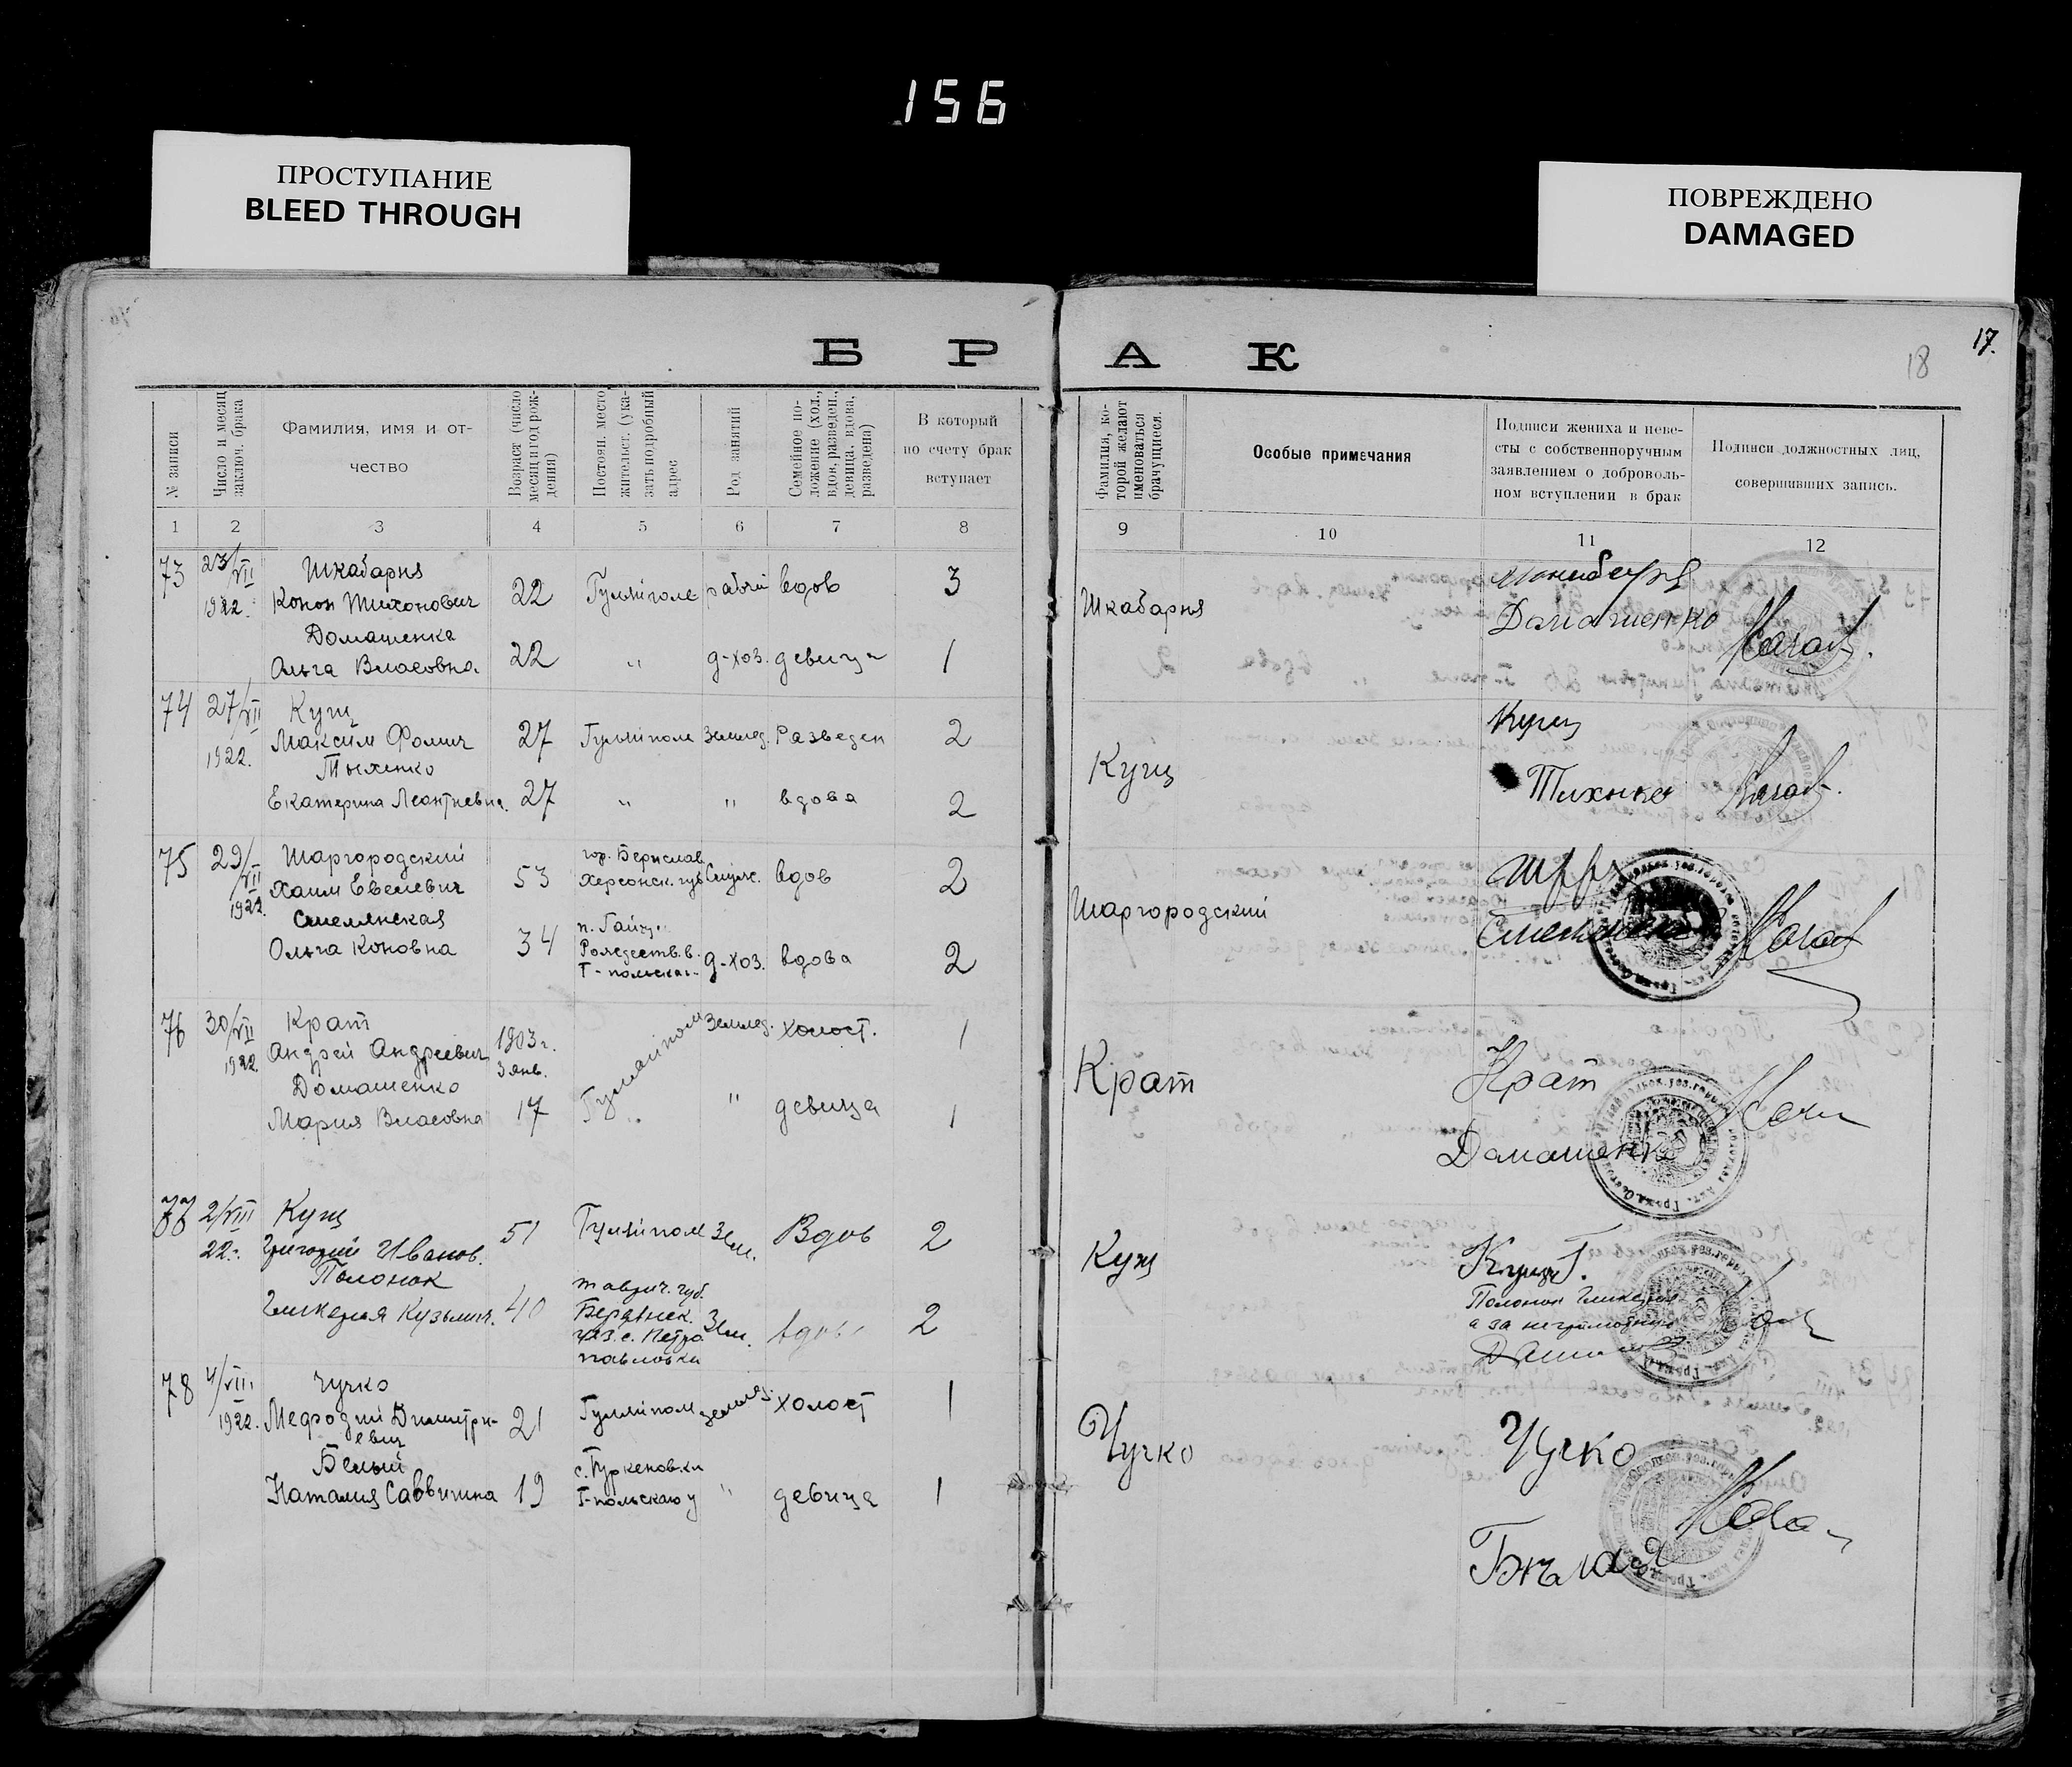 156
ПРОСТУПАНИЕ
BLEED THROUGH
ПОВРЕЖДЕНО
DAMAGED
17.
18
БРАК
№ записи
Число и месяц
заключ. брака
Фамилия, имя и от-
чество
Возраст (число
месяц и год рож-
дения)
Постоян. место
жительст. (ука-
зать подробный
адрес
Род занятий
Семейное по-
ложение (хол.,
вдов, разведен.,
девица, вдова,
разведена)
В который
по счету брак
вступает
Фамилия, ко-
торой желают
именоваться
брачущиеся.
Особые примечания
Подписи жениха и неве-
сты с собственноручным
заявлением о доброволь-
ном вступлении в брак
Подписи должностных лиц,
совершивших запись.
1 2 3 4 5 6 7 8 9 10 11 12
73 23/VII
1922.
Шкабарня
Конон Тихонович 22 Гуляйполе рабчий вдов 3
Домашенка
Ольга Власовна 22 " д-хоз. девица 1
Шкабарня
Домашенко
74 27/VII
1922.
Кущ
Максим Фомич 27 Гуляйполе Землед. Разведен 2
Тыхенко
Екатерина Леонтиевна. 27 " " вдова 2
Кущ
Кущ
Тихонко
75 29/VII
1922.
Шаргородский
Хаим Евелевич 53 гор. Берислав
Херсонск. губ Служ. вдов 2
Смелянская
Ольга Коновна 34 п. Гайчу.
Рождеств. в.
Г-польская. д-хоз. вдова 2
Шаргородский
76 30/VII
1922.
Крат
Андрей Андреевич 1903 г.
3 янв. Гуляйполе Землед. холост. 1
Домашенко
Мария Власовна 17 " " девица 1
Крат
Крат
Домашенко
77 2/VIII
22.
Кущ
Григорий Иванов. 51 Гуляйполе Зем. Вдов 2
Полонок
Гликерия Кузьмин. 40 таврич. губ.
Бердянск.
уез. с. Петро
павловки Зем. вдова 2
Кущ
Кущ Г.
Полонок Гликерия
а за неграмотную
78 4/VIII
1922.
Чучко
Мефодий Димитри-
евич 21 Гуляйполе землед. холост 1
Белый
Наталия Саввишна 19 с. Туркеновки
Г-польскаго у " девица 1
Чучко
Чучко
Бѣлая